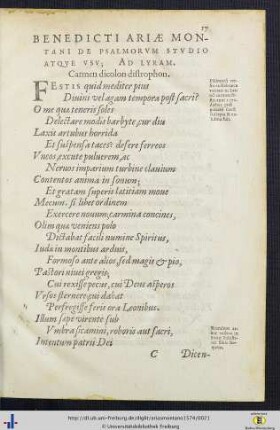 17
BENEDICTI ARIÆ MON-
TANI DE PSALMORVM STVDIO
ATQVE VSV; AD LYRAM.
Carmen dicolon distrophon.
FESTIS quid mediter pius
Diuini vel agam tempora post sacri?
O me qua teneris soles
Delectare modis barbyte, cur diu
Laxis artubus horrida
Et suspensa taces? desere ferreos
Vncos, excute puluerem, ac
Neruos imparium turbine clauium
Contentos anima in sonum;
Et gratam superis lætitiam moue
Mecum. si libet ordinem
Exercere nouum, carmina concines,
Olim quæ veniens polo
Dictabat facili numine Spiritus,
Inda in montibus arduis,
Formoso ante alios, sed magis & pio,
Pastori niuei gregis;
Cui rexisse pecus, cui Deus asperos
Vrsos sternere qui dabat
Perfregisse feris ora Leonibus.
Illum sæpe virente sub
Vmbra sicamini, roboris aut sacri,
Intentum patrii Dei
C Dicen-
http://dl.ub.uni-freiburg.de/diglit/ariasmontano1574/0021
© Universitätsbibliothek Freiburg
Baden-Württemberg